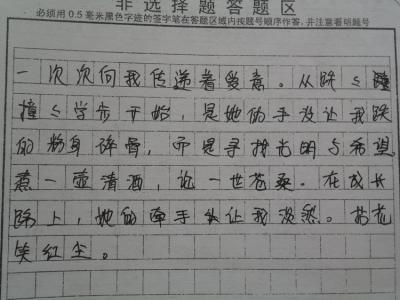 非选择题答题区
必须用0.5毫米黑色字迹的签字笔在答题区域内按题号顺序作答,并注意着明题号
一次次向我传递着爱意。从跌跌撞
撞学步开始,是她的手没让我跌
的粉身碎骨,而是寻找光明与希望
煮一壶清酒,论一世苍桑。在成长
路上,她的牵手让我淡然。拈花
笑红尘。